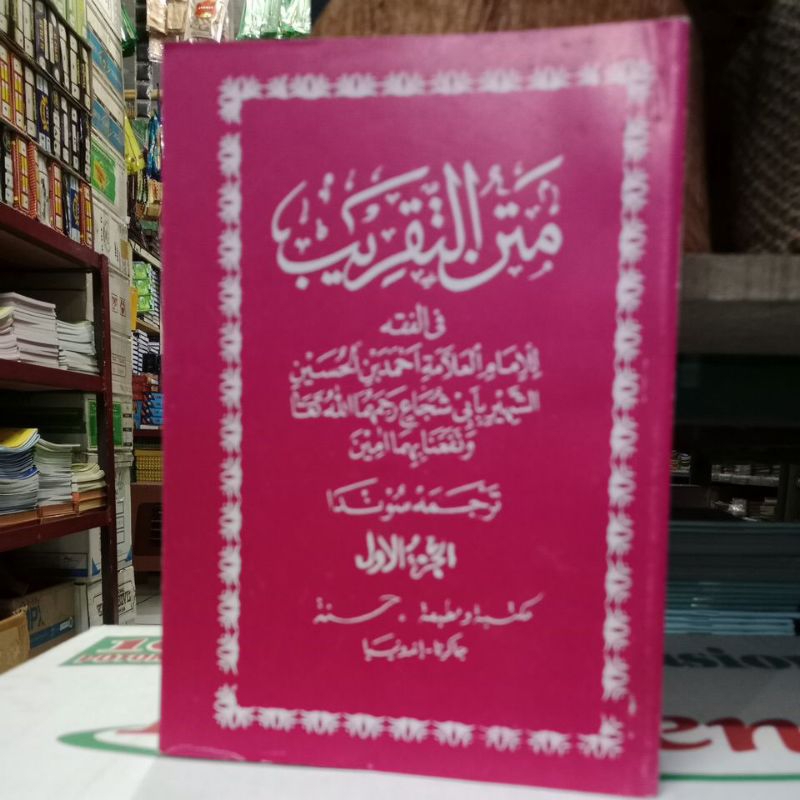 مَتْنُ التَّقْرِيْب
فى الفقه
لِلْإِمَامِ الْعَلَّامَةِ أَحْمَدَ بْنِ الْحُسَيْنِ
الشَّهِيْرِ بِأَبِيْ شُجَاعٍ رَحِمَهُمَا اللهُ تَعَا
وَنَفَعَنَا بِهِمَا اٰمِيْنَ
تَرْجَمَهْ سُوْنْدَا
الجزء الاول
مكتبة ومطبعة . حسنة
جاكرتا - إندونيسيا